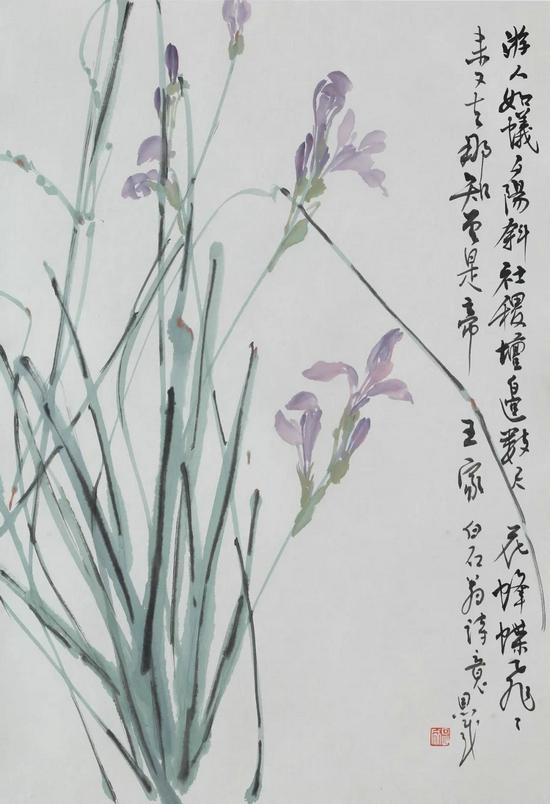 游人如蟻夕陽斜社稷壇邊數尺花蜂蝶飛〻
来又去那知曾是帝王家白石翁詩意